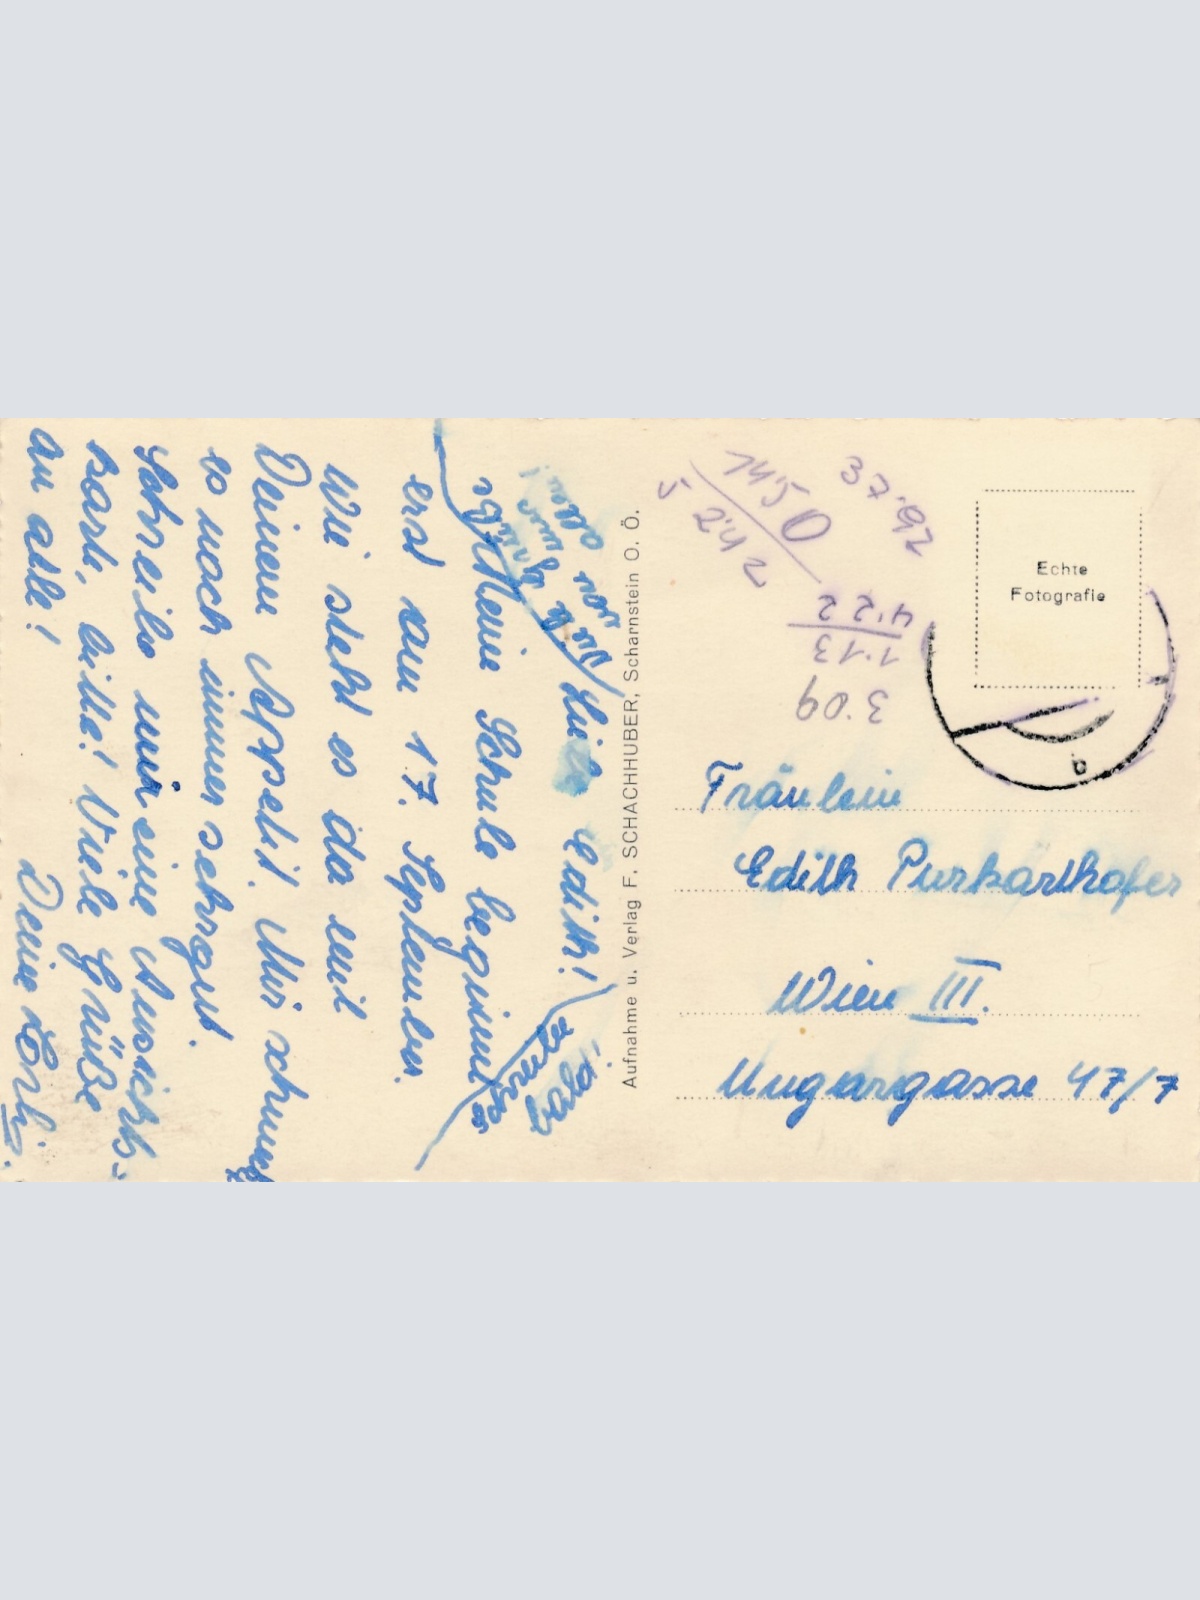 Liebe Edith!
Meine Schule beginnt
erst am 17. September.
Wie steht es da mit
Deinem Appetit. Mir schmeckt
es noch immer sehr gut.
Schreibe mir eine Ansichts-
karte, bitte! Viele Grüße
an alle!
Deine
Aufnahme u. Verlag F. SCHACHHUBER, Scharnstein O. Ö.
Echte
Fotografie
b
37.92
14.50
2.42
5
4.22
1.13
3.09
Fräulein
Edith Purkarthofer
Wien III.
Ungargasse 47/7